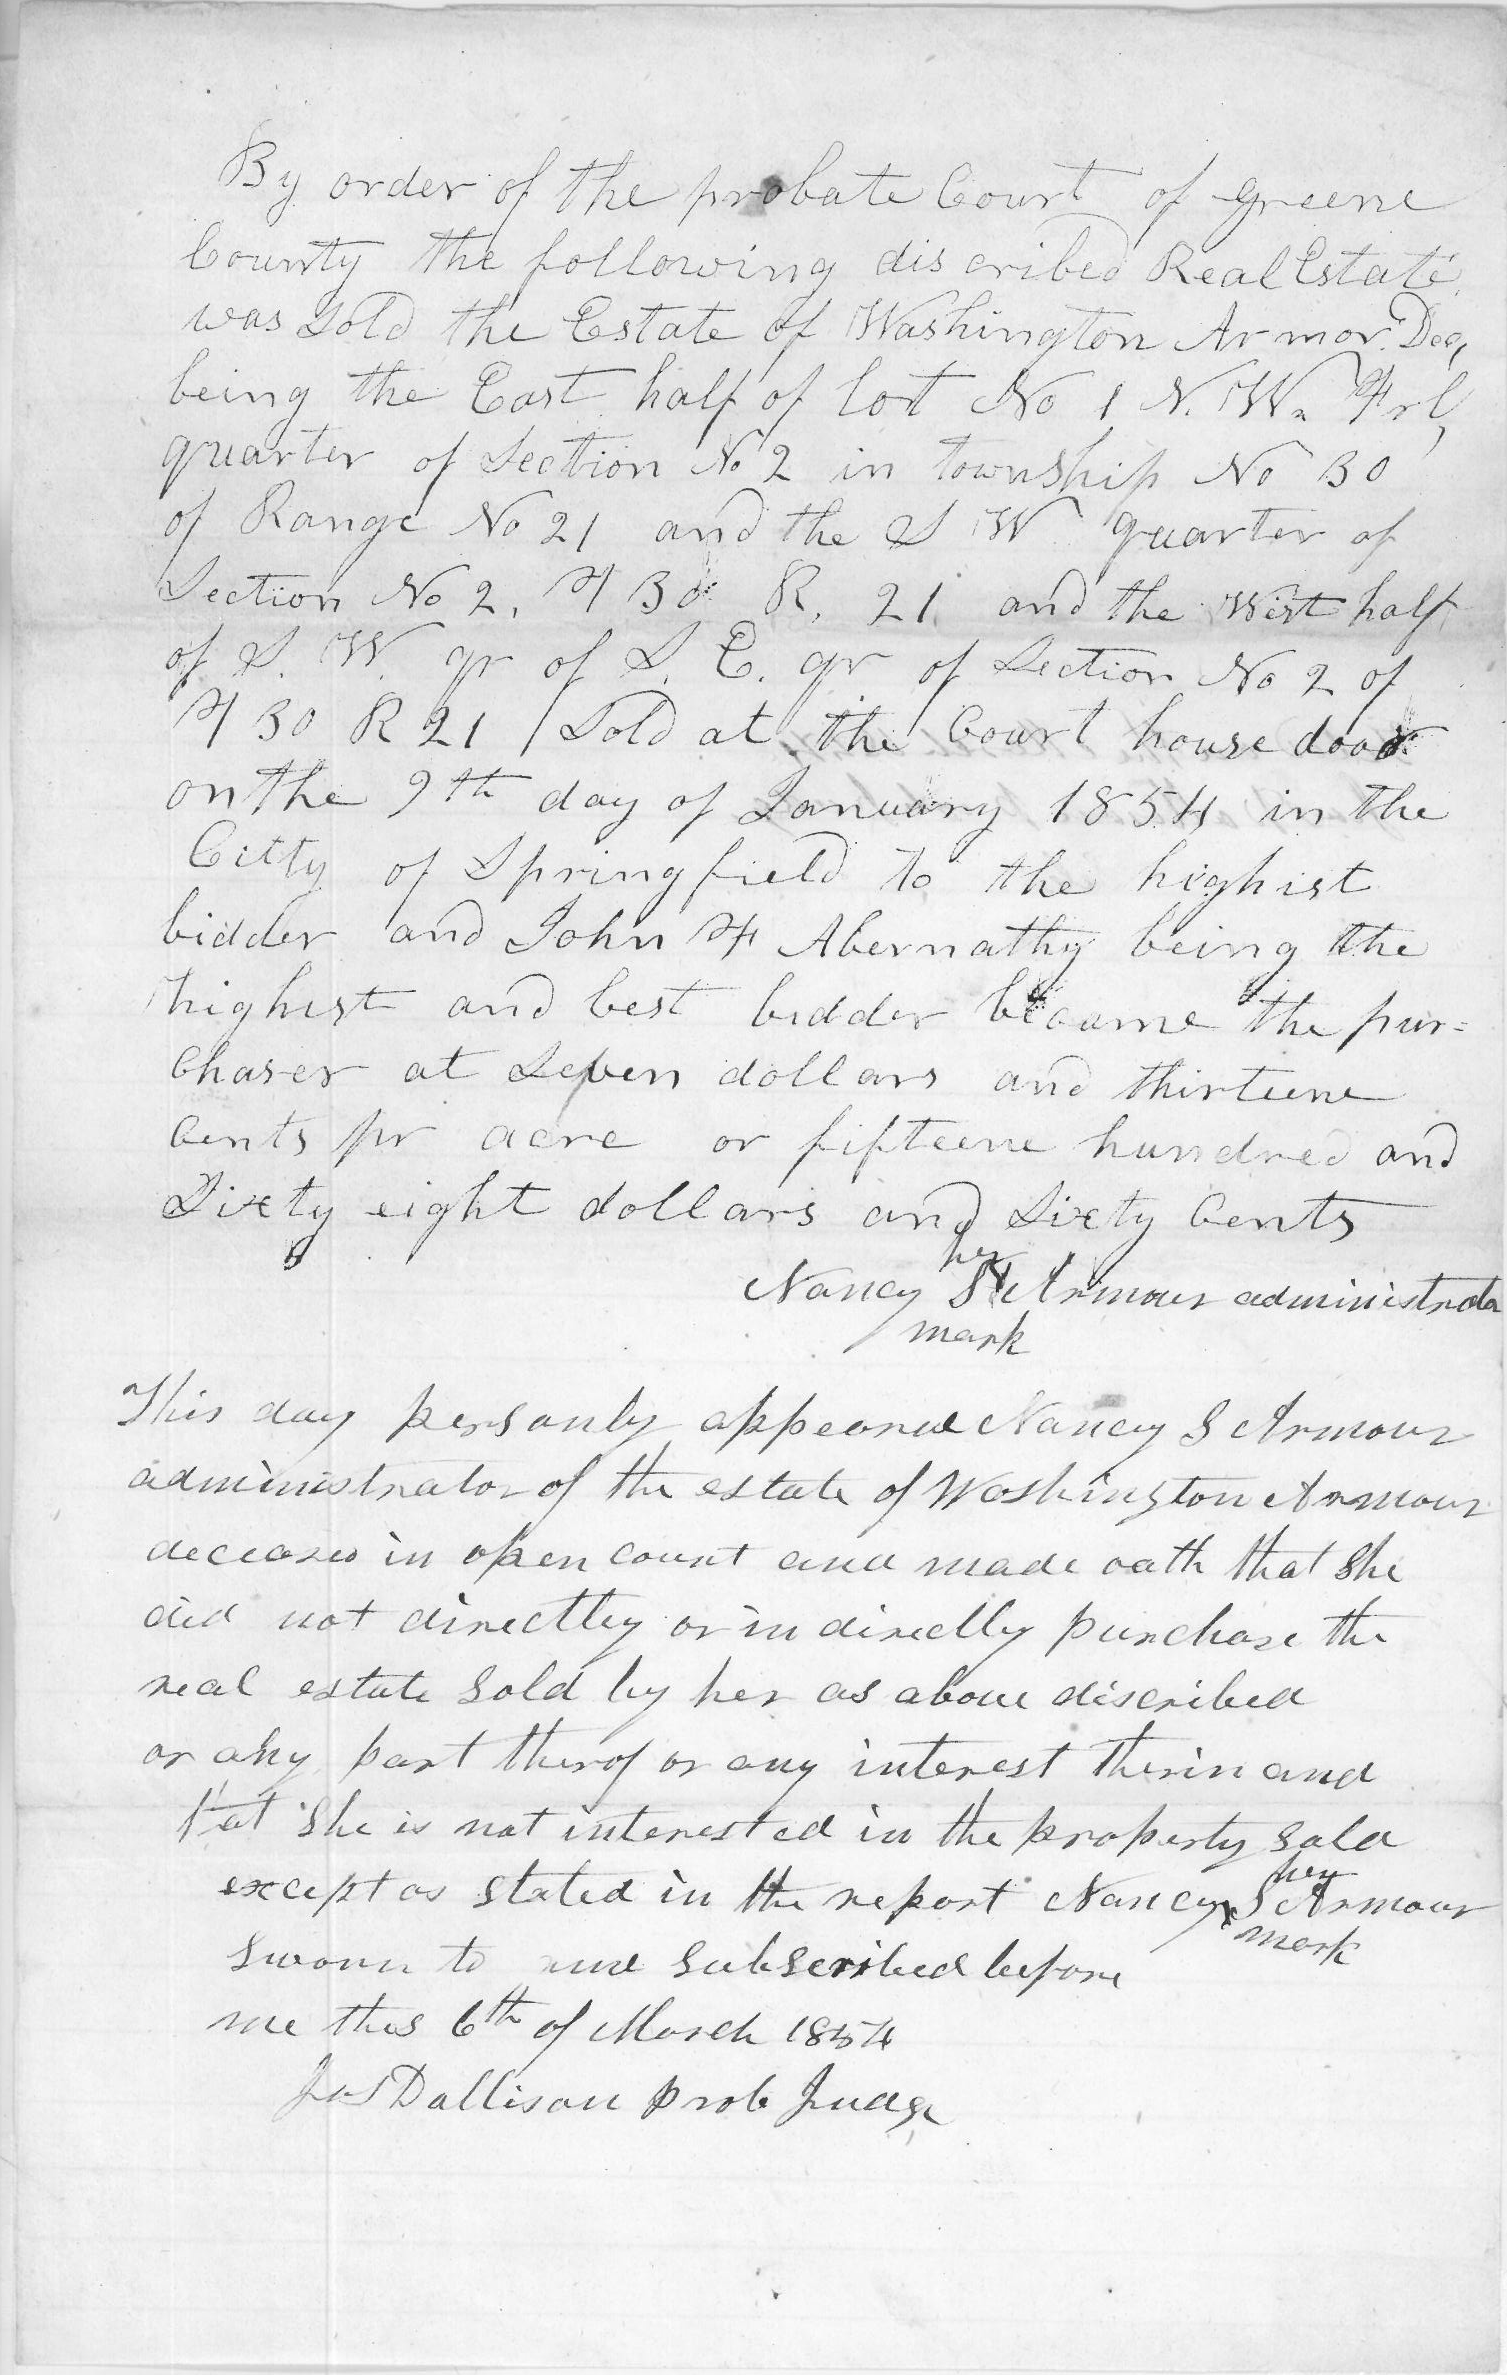 By order of the probate Court of Greene
County the following discribed Real Estate
was Sold the Estate of Washington Armor. Dec,
being the East half of lot No 1 N. W. Frl,
quarter of Section No 2 in township No 30
of Range No 21 and the S W quarter of
Section No 2. T 30 R. 21 and the West half
of S. W. qr of S. E. qr of Section No 2 of
T 30 R 21 Sold at the Court house door
on the 9th day of January 1854 in the
Citty of Springfield to the highist
bidder and John F Abernathy being the
highist and best bidder became the pur=
chaser at Seven dollars and thirteene
Cents pr acre or fifteene hundred and
Sixty eight dollars and Sixty Cents
her
Nancy S X Armour administrator
mark
This day personly appeared Nancy S Armour
administrator of the estate of Washington Armour
deceased in open court and made oath that She
did not directtly or in directly purchase the
real estate Sold by her as above discribed
or any part therof or any interest therin and
that She is not interested in the property sold
except as stated in the report Nancy X S Armour
her
mark
Sworn to and subscribed before
me this 6th of March 1854
Jos Dallison prob Judge